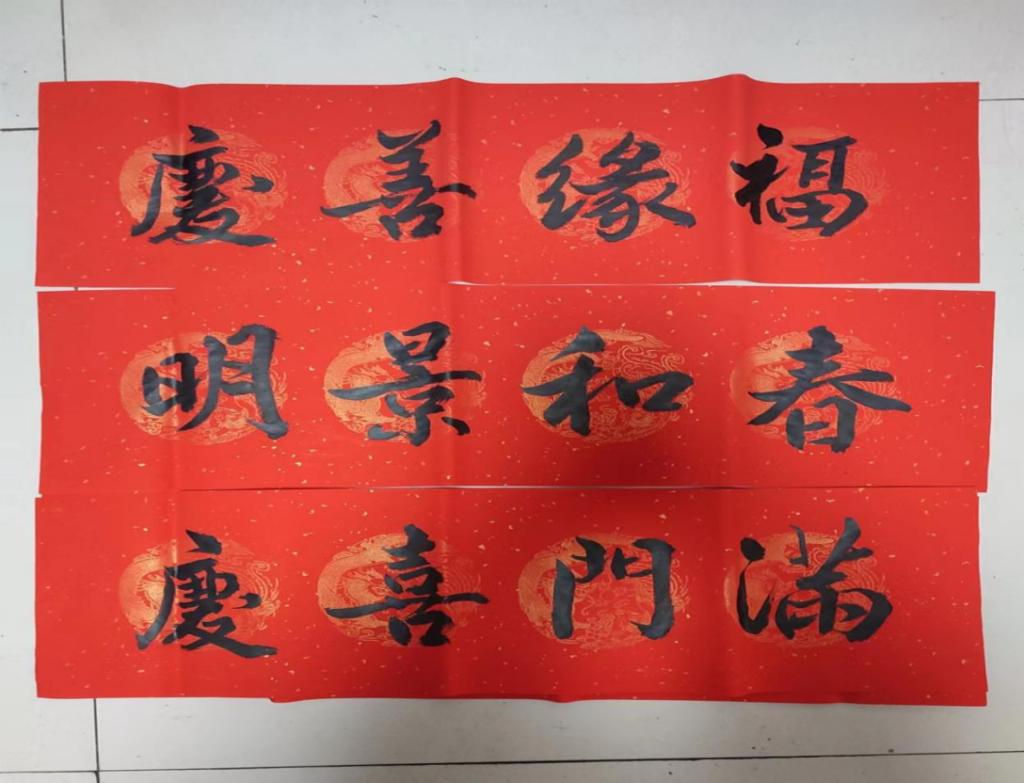 福缘善慶
春和景明
满門喜慶